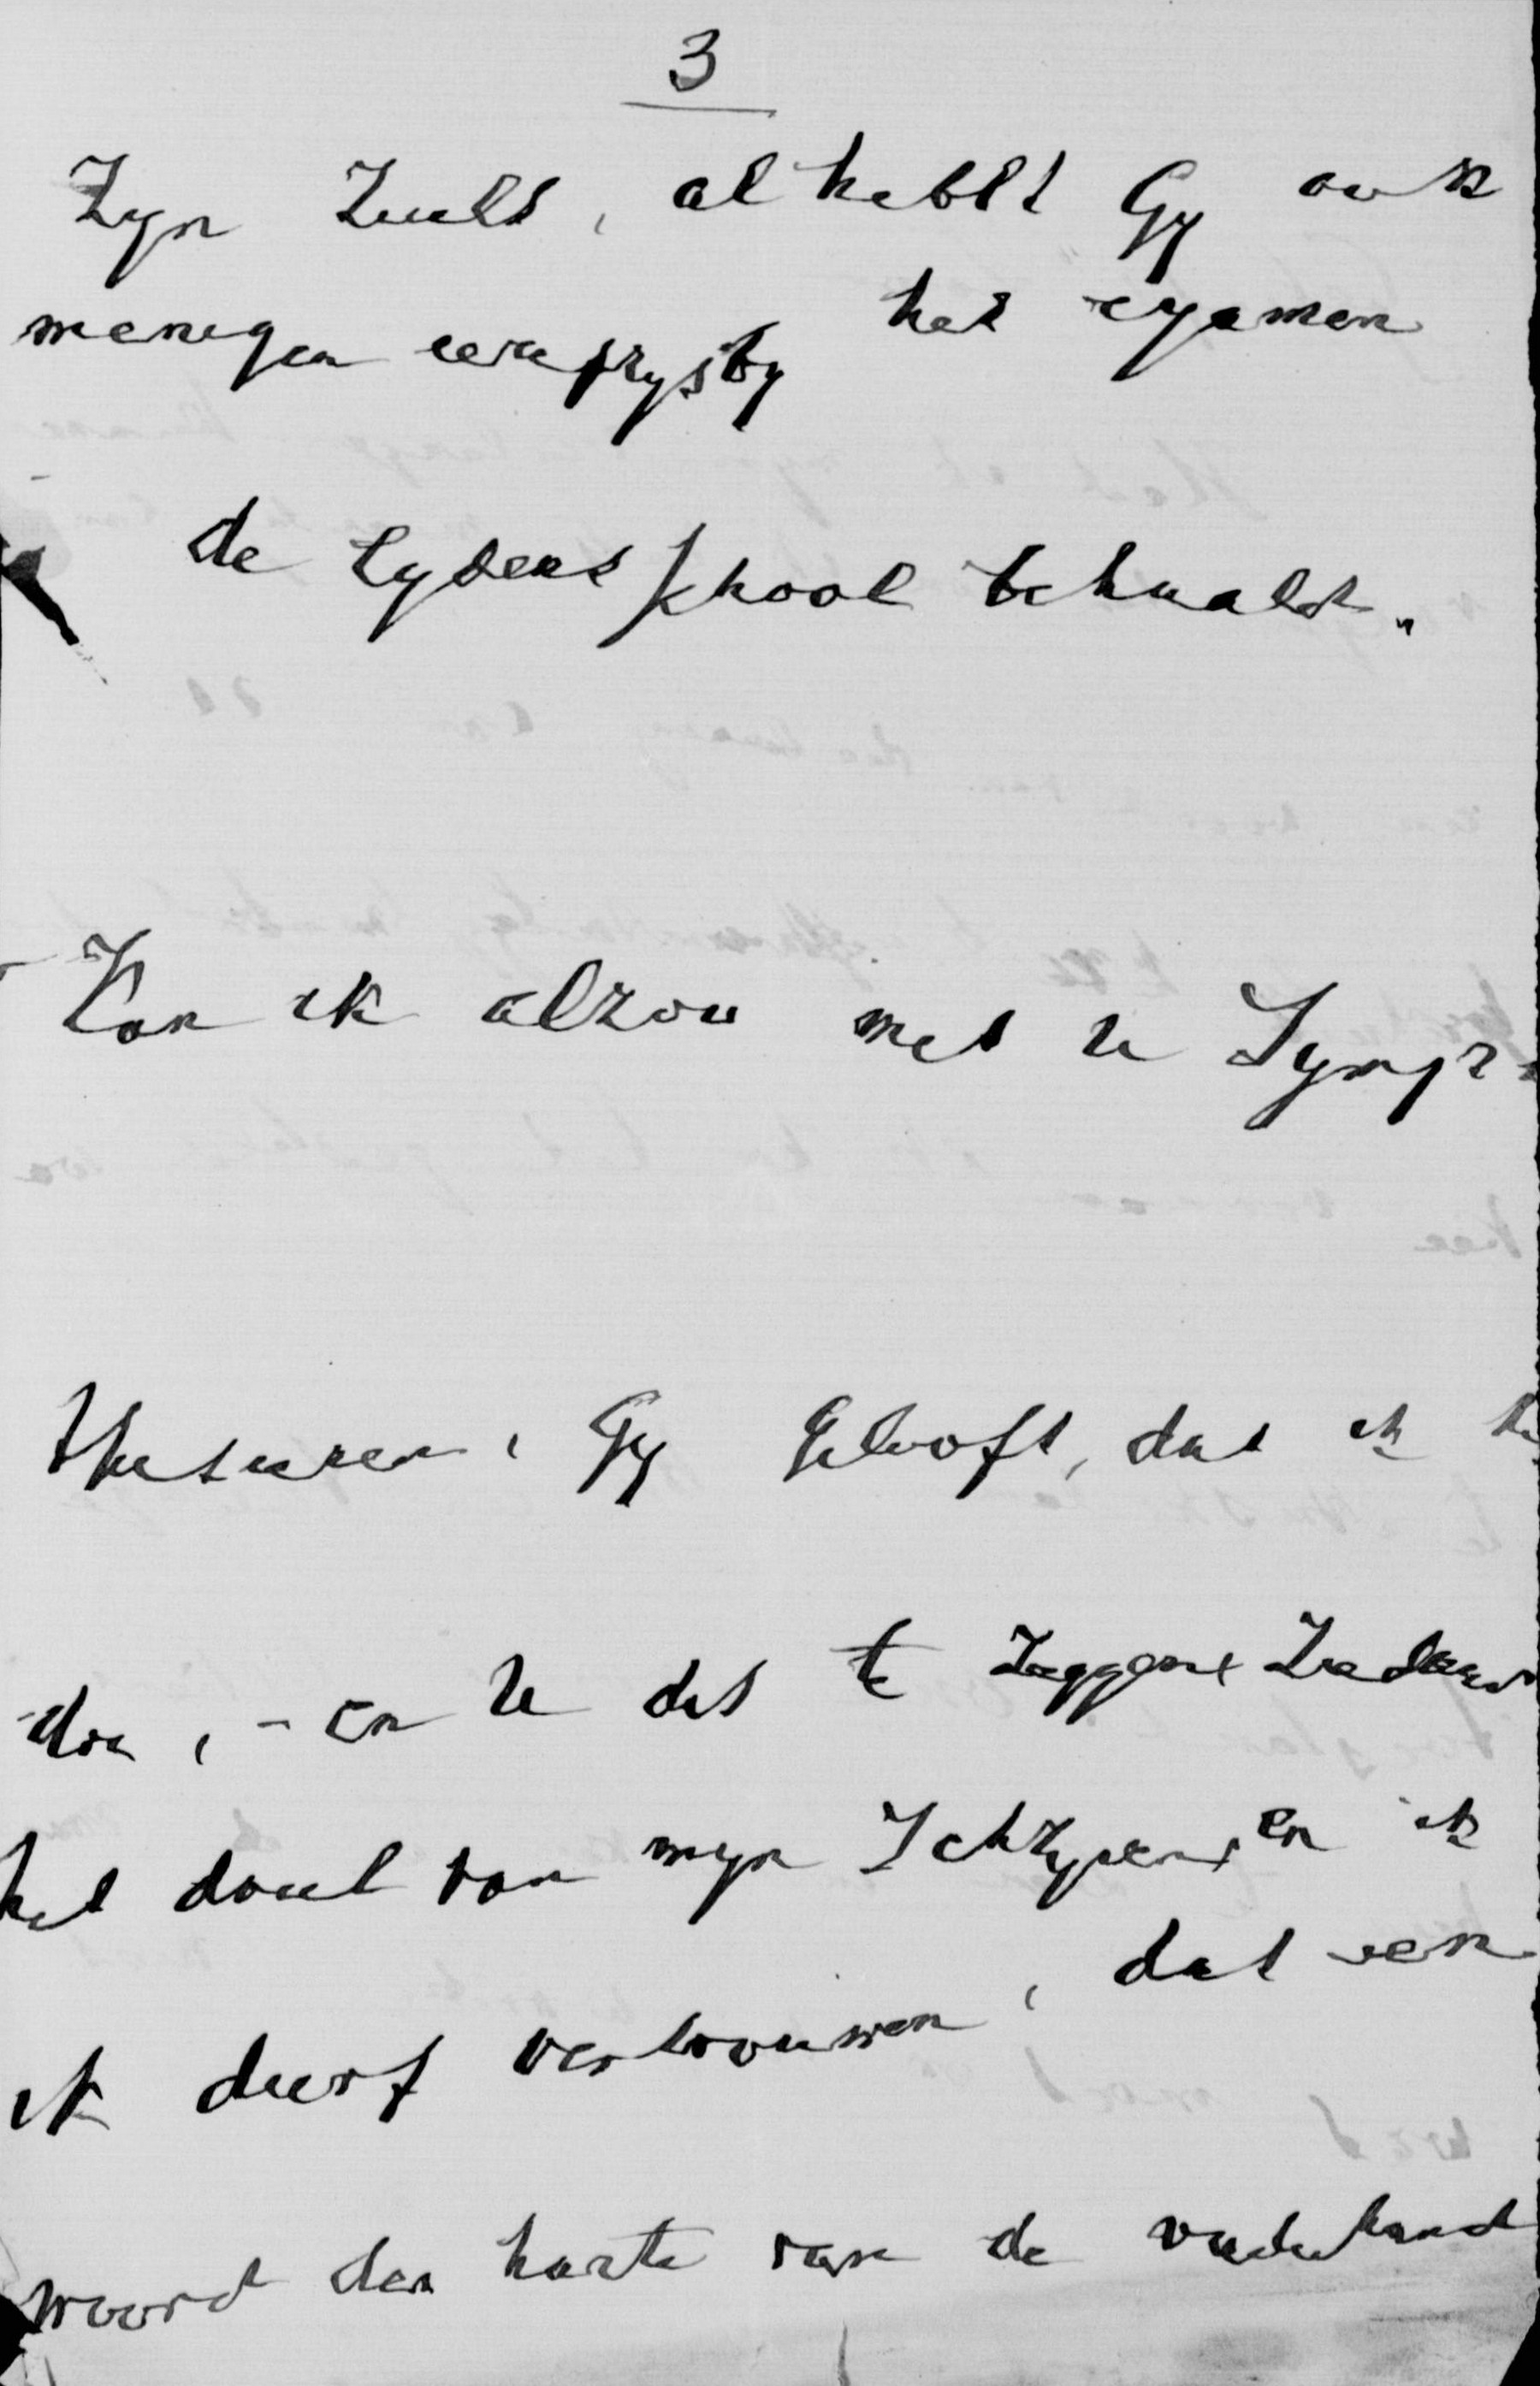 3
Zyn Zult, al hebbt Gy ook
menigen eereprys by het examen
de Lydensschool behaald.
Kan ik alzoo met U Symp-
thiseren, Gy Gelooft, dat ik
doe, - en U dit te Zeggen
het doel van myn Schryven, en ik
ik durf vertrouwen, dat een
woord der harte van de